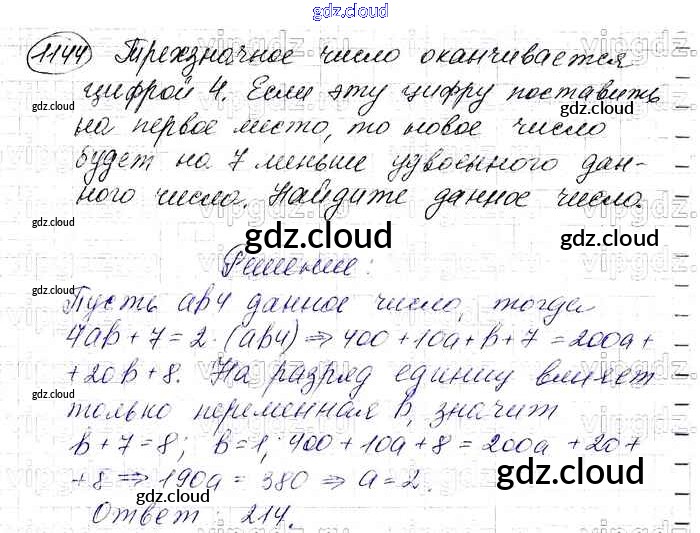 gdz.cloud
1144 Трехзначное число оканчивается
цифрой 4. Если эту цифру поставить
на первое место, то новое число
будет на 7 меньше удвоенного дан-
ного числа. Найдите данное число.
gdz.cloud
Решение:
Пусть ab4 данное число, тогда
4ab + 7 = 2 · (ab4) ⇒ 400 + 10a + b + 7 = 200a +
+ 20b + 8. На разряд единиц влияет
только переменная b, значит
b + 7 = 8; b = 1; 400 + 10a + 8 = 200a + 20 +
+ 8 ⇒ 190a = 380 ⇒ a = 2.
Ответ: 214.